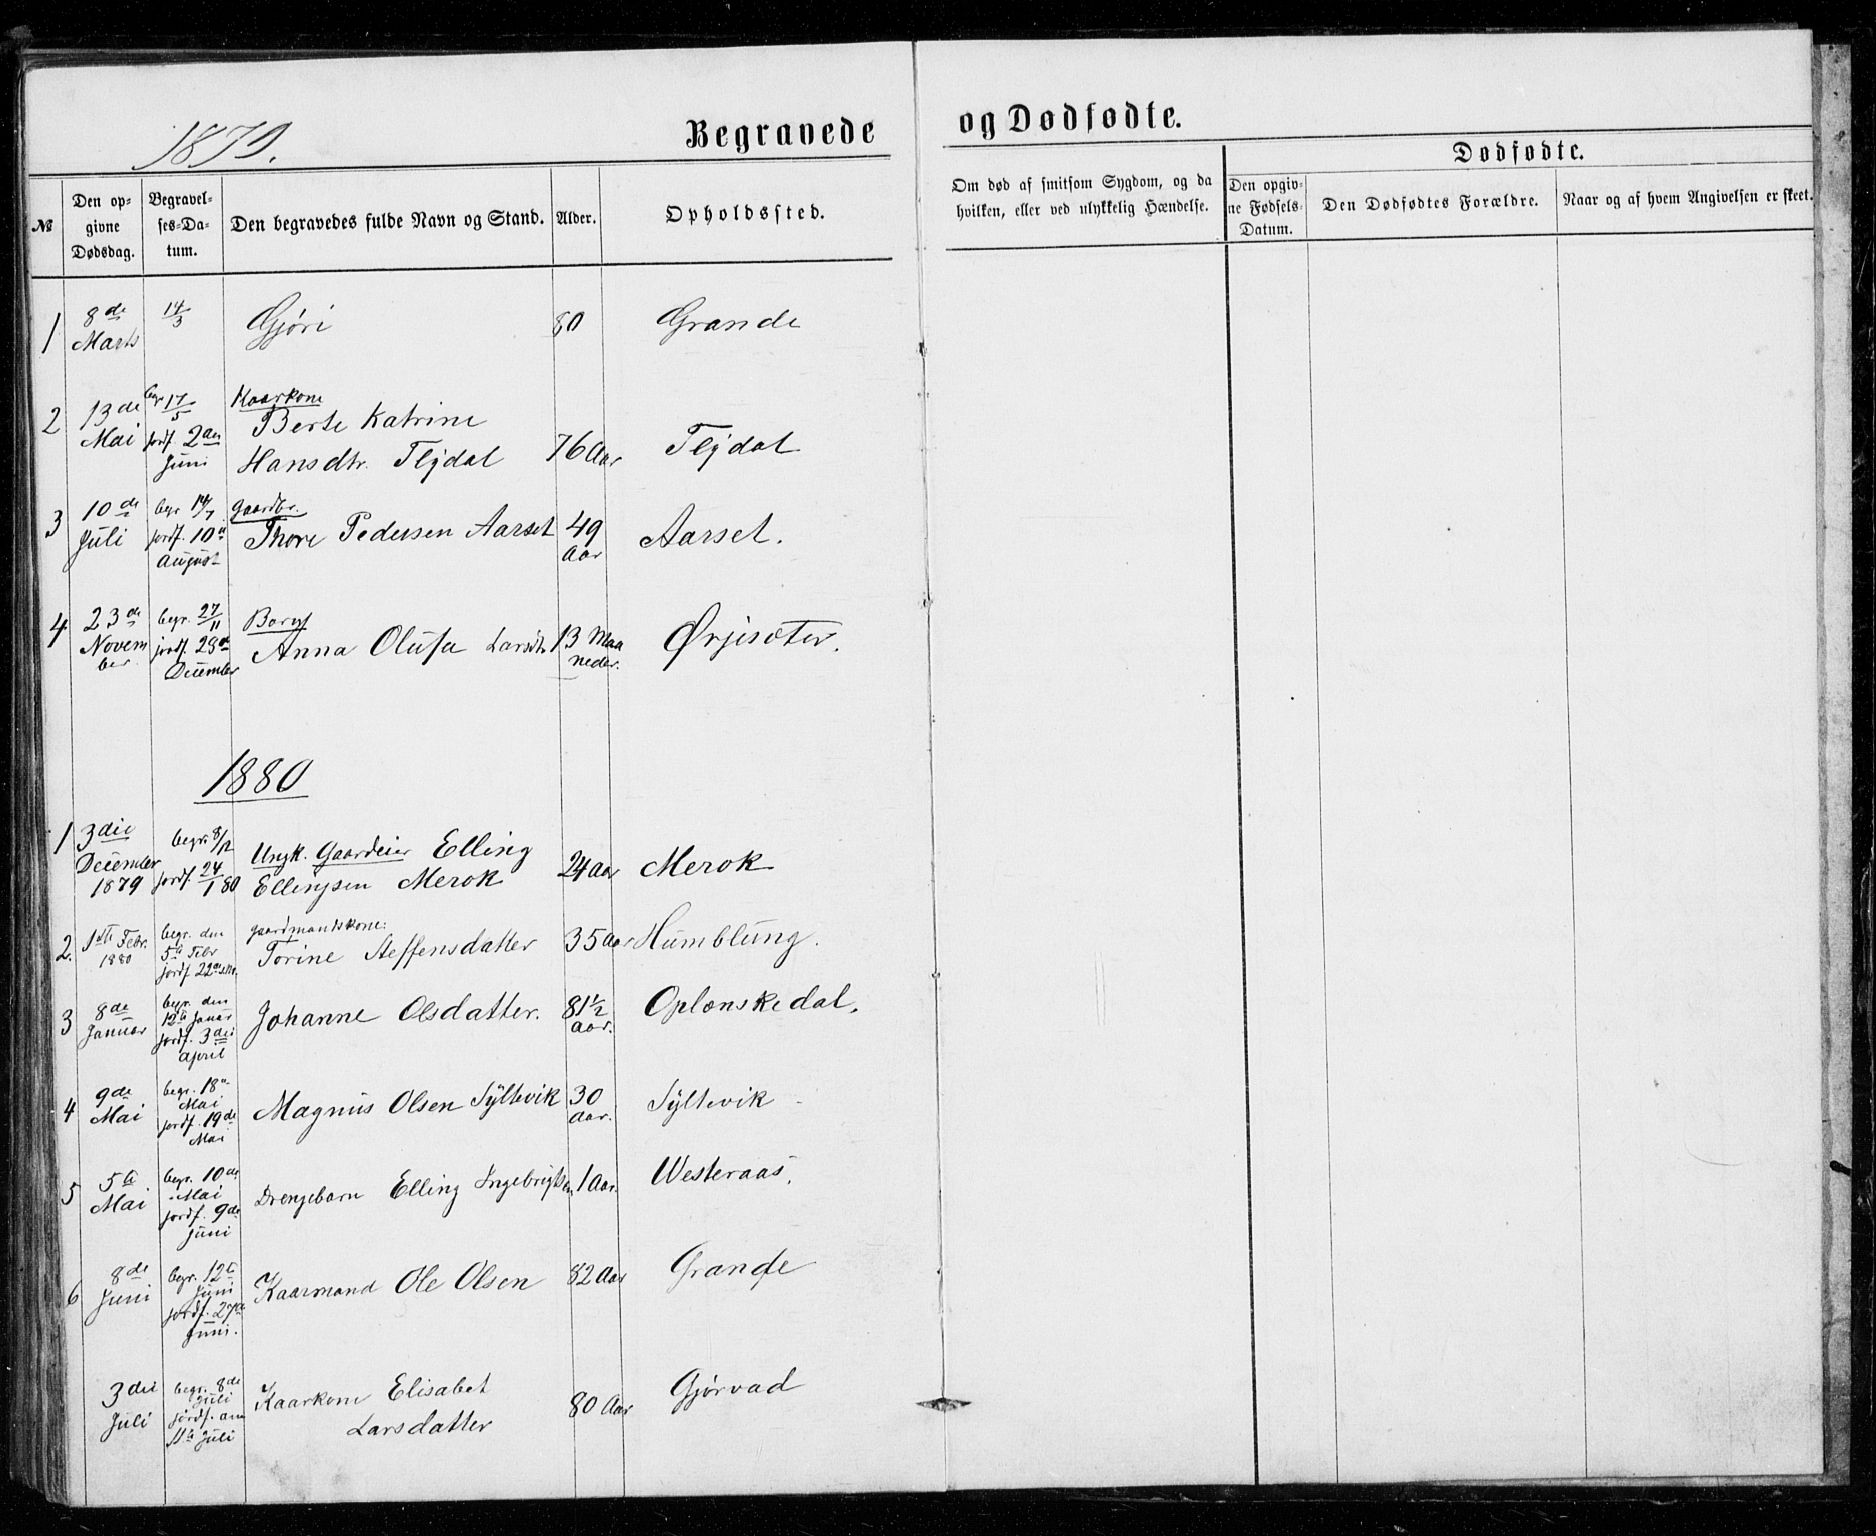 1879.
Begravede og Dødfødte.
Dødfødte.
№
Den opgivne Dødsdag.
Begravelses-Datum.
Den begravedes fulde Navn og Stand.
Alder.
Opholdssted.
Om død af smitsom Sygdom, og da hvilken, eller ved ulykkelig Hændelse.
Den opgivne Fødsels-Datum.
Den Dødfødtes Forældre.
Naar og af hvem Angivelsen er skeet.
1 8de Marts 14/3 Gjøri 80 Grande
2 13de Mai begr 17/5 jordf. 2den Juni Kaarkone Berte Katrine Hansdtr. Flydal 76 Aar Flydal
3 10de Juli begr 14/7 jordf. 10" August Gaardbr. Thore Pedersen Aarset 49 Aar Aarset.
4 23de November begr. 27/11 jordf. 28de December Anna Olufa Larsdtr 13 Maaneder. Ørjisæter.
1880
1 3die December 1879 begr. 8/12 jordf. 24/1 80 Ungk. Gaardeier Elling Ellingsen Merok 24 Aar Merok
2. 1ste Febr. 1880 begr. den 5te Febr jordf. 22de Gaardmandskone: Torine Steffensdatter 35 Aar Humblung.
3 8de Januar begr. den 12te Januar jordf. 3die April Johanne Olsdatter. 81 1/2 Aar. Oplænskedal.
4 9de Mai begr. 18" Mai jordf. 19de Mai Magnus Olsen Syltevik 30 Aar. Syltevik
5 5te Mai begr. 10de Mai jordf. 9de Juni Drengebarn Elling Ingebrigtsen 1 Aar. Westeraas.
6 8de Juni begr. 12te Juni jordf. 27de Juni. Kaarmand Ole Olsen 82 Aar Grande
3die Juli begr. 8de Juli jordf. am 11te Juli Kaarkone Elisabet Larsdatter 80 Aar Gjørvad